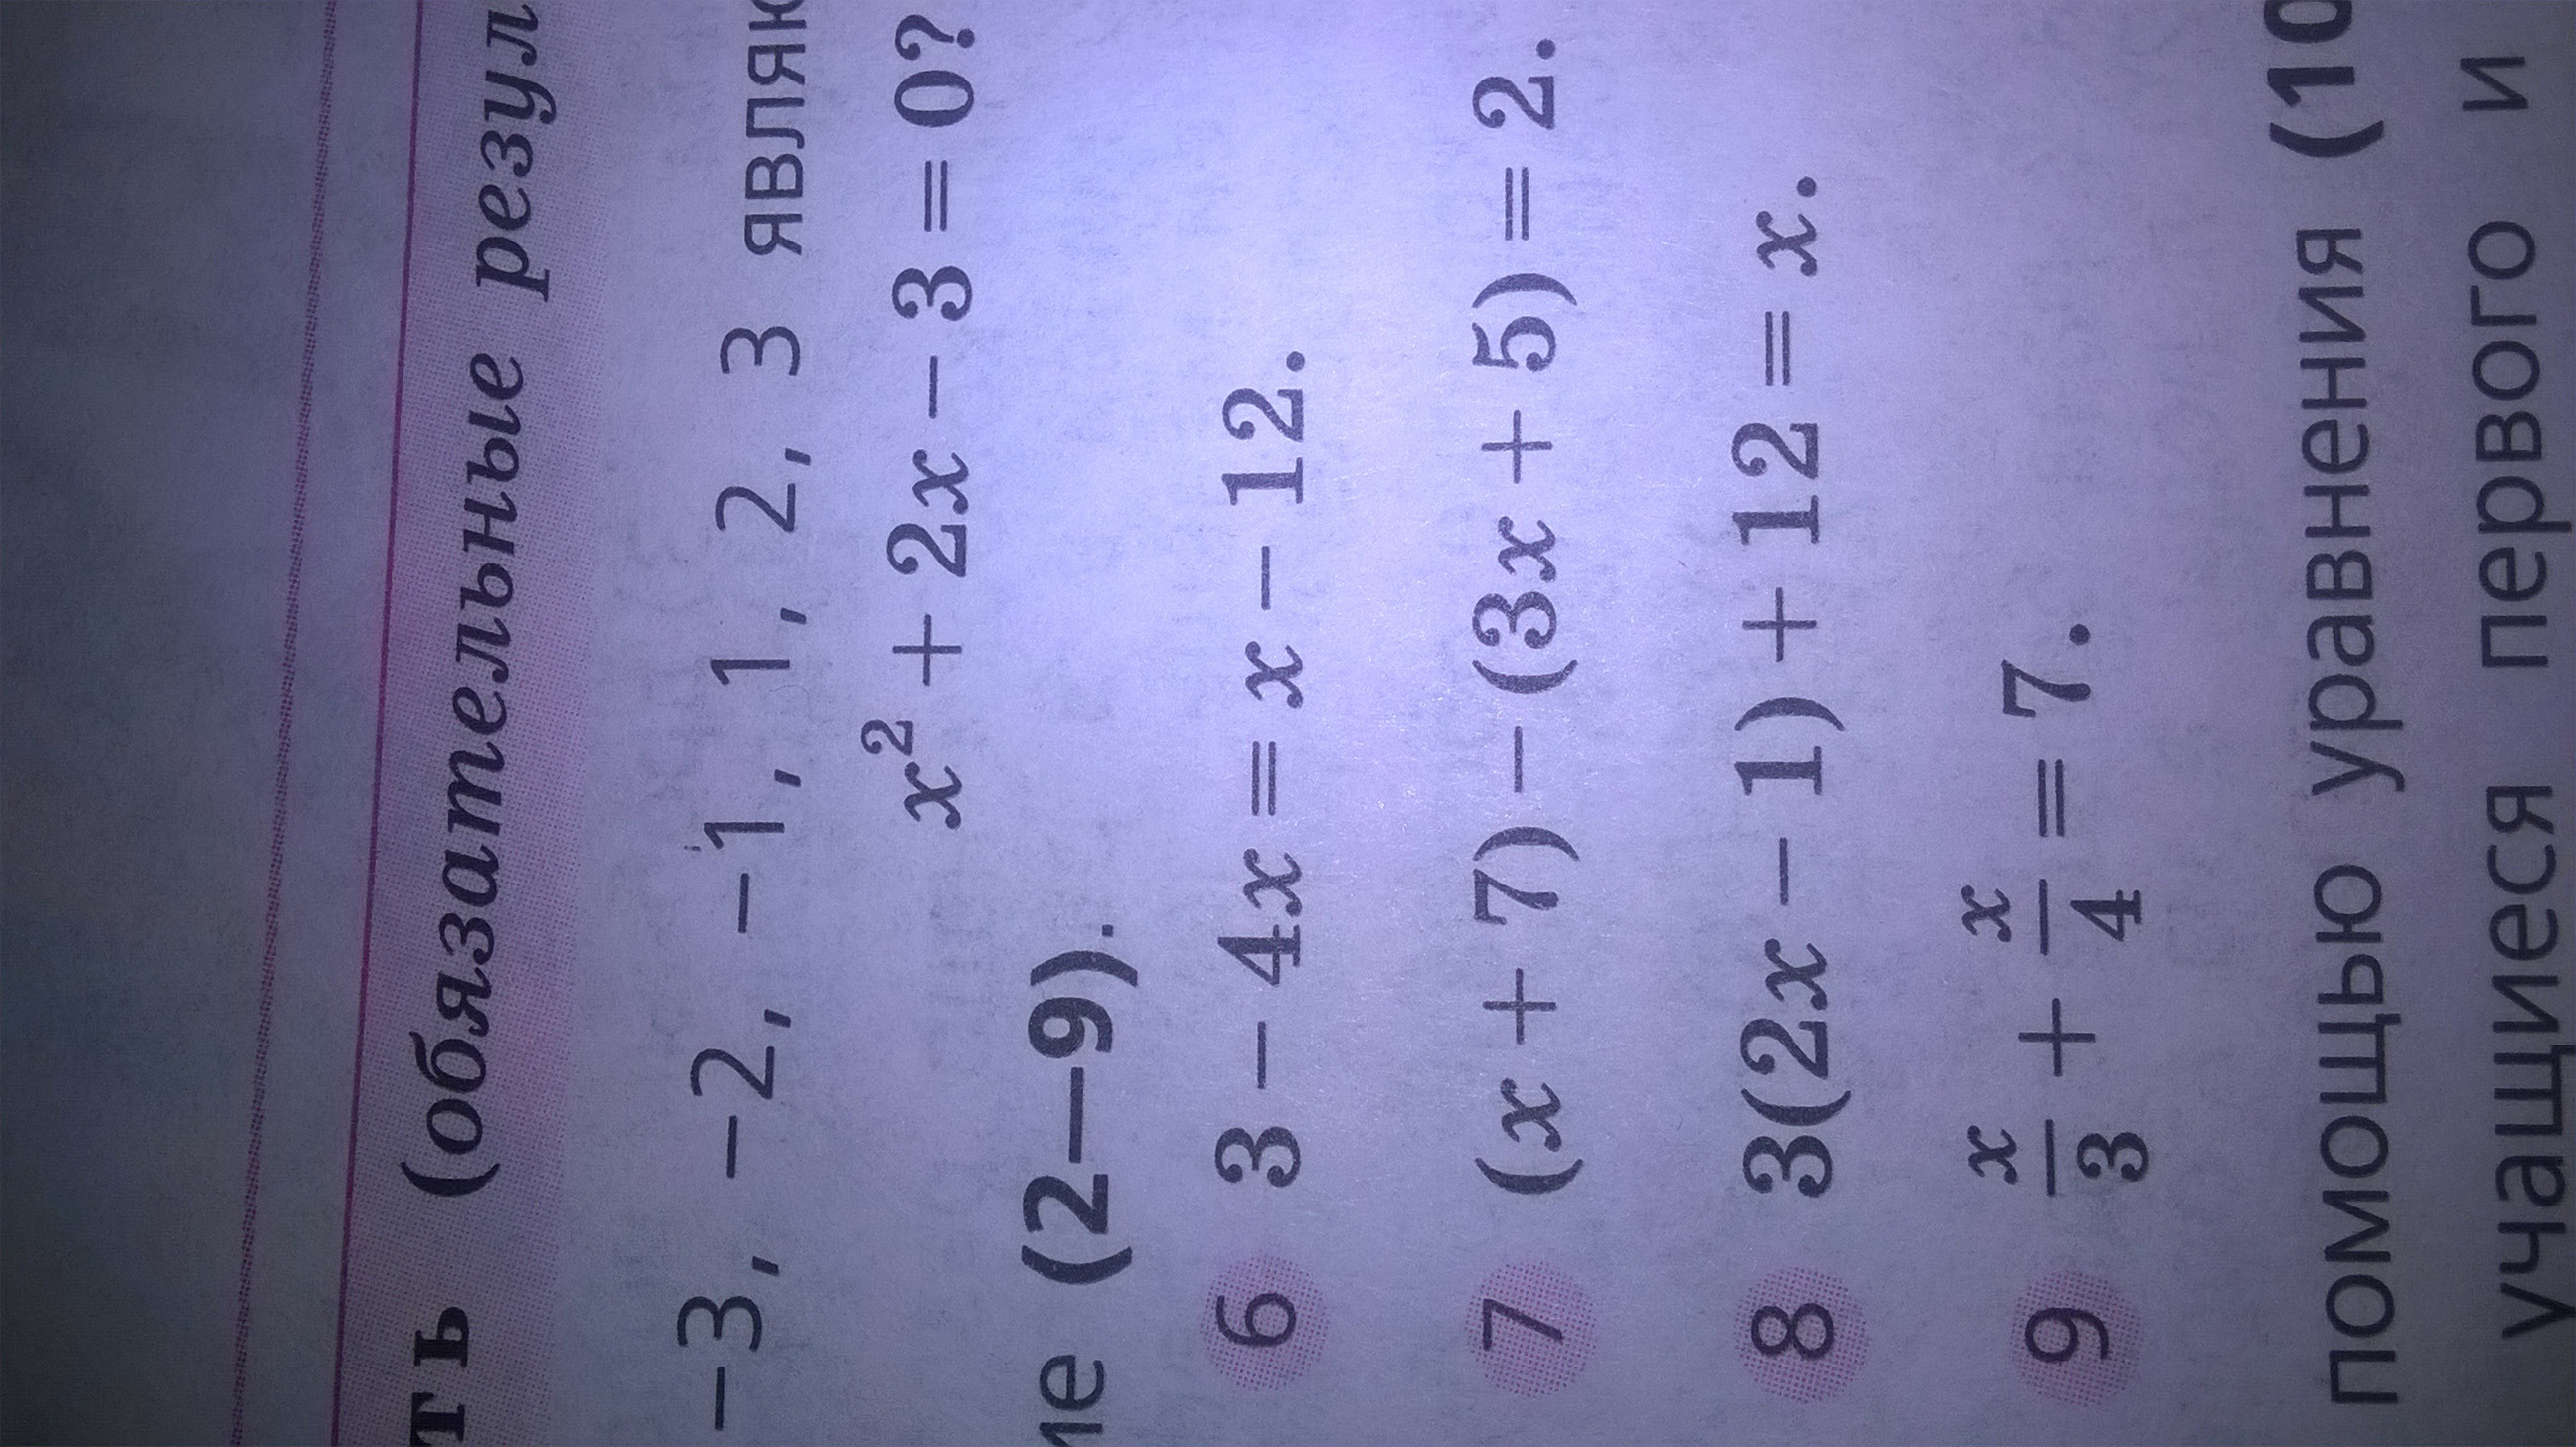 ть (обязательные резул
−3, −2, −1, 1, 2, 3 являю
x² + 2x − 3 = 0?
ие (2—9).
6 3 − 4x = x − 12.
7 (x + 7) − (3x + 5) = 2.
8 3(2x − 1) + 12 = x.
9 x/3 + x/4 = 7.
помощью уравнения (10
учащиеся первого и